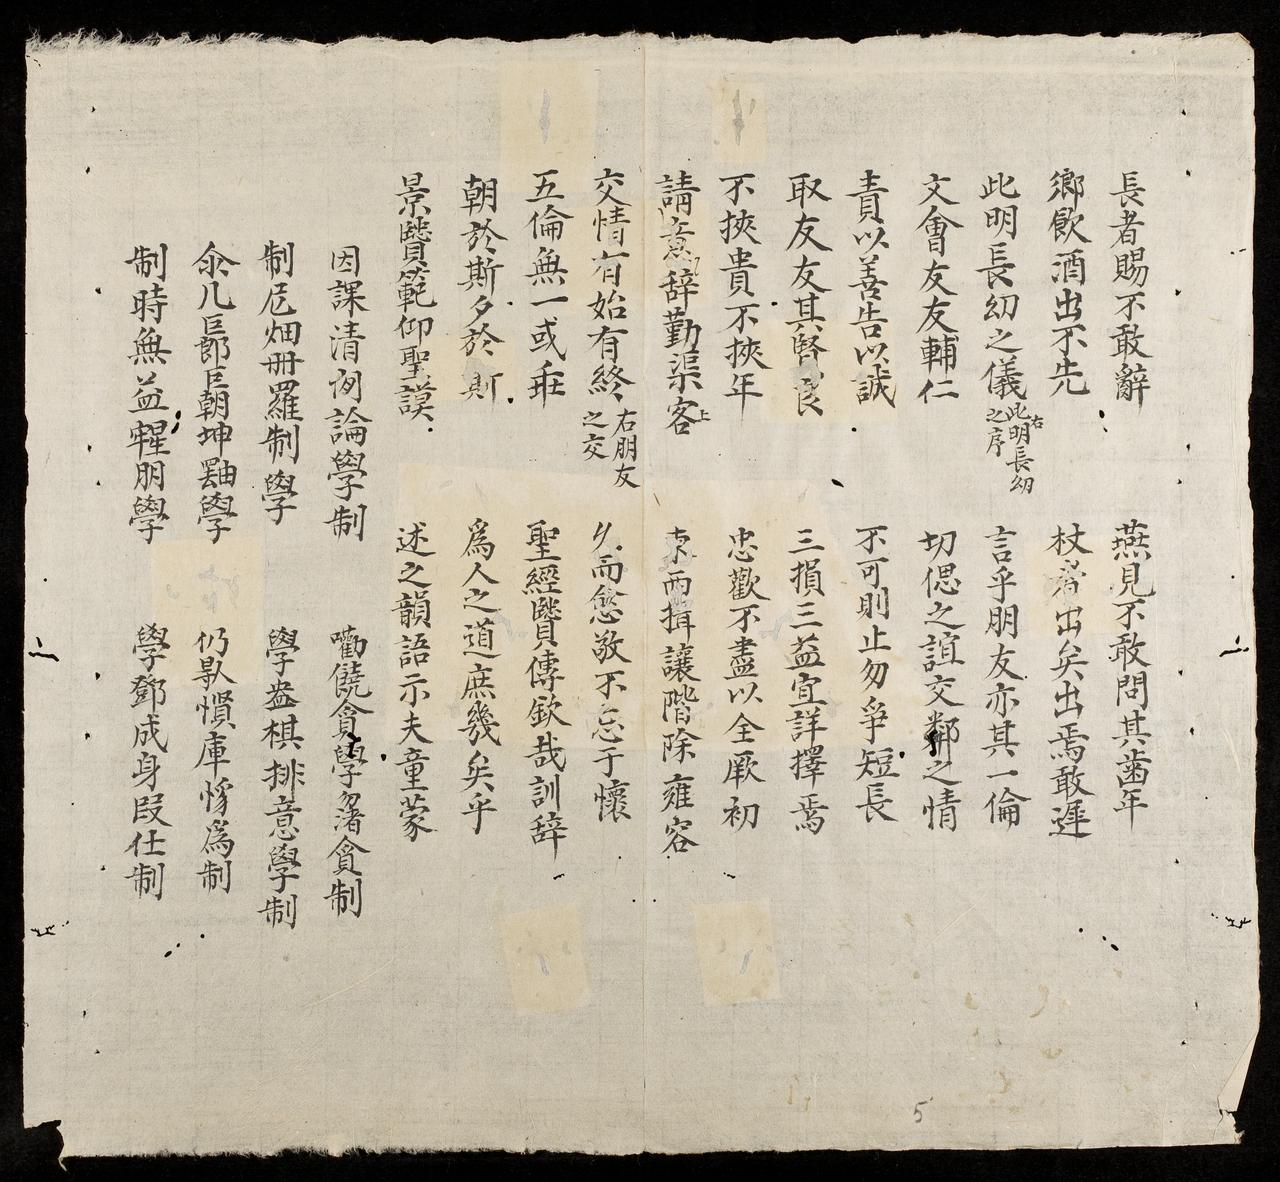 長者賜不敢辭 燕見不敢問其歯年
鄉飲酒出不先 杖者出矣出焉敢遲
此明長幼之儀 右此明長幼之序 言乎朋友亦其一倫
文會友友輔仁 切偲之誼交鄰之情
責以善告以誠 不可則止勿爭短長
取友友其賢良 三損三益宜詳擇焉
不挾貴不挾年 忠歡不盡以全厥初
請意辞勤渠客上 東西揖讓階除雍容
交情有始有終 右朋友之交 久而愈敬不忘于懷
五倫無一或乖 聖經賢傳欽哉訓辞
朝於斯夕於斯 爲人之道庶幾矣乎
景賢範仰聖謨 述之韻語示夫童蒙
因課清例論學制 勸饒貪學貪制
制尼畑冊羅制學 學盎棋排意學制
几巨郎巨朝坤學 仍慣庫爲制
制時無益朋學 學鄧成身段仕制
5